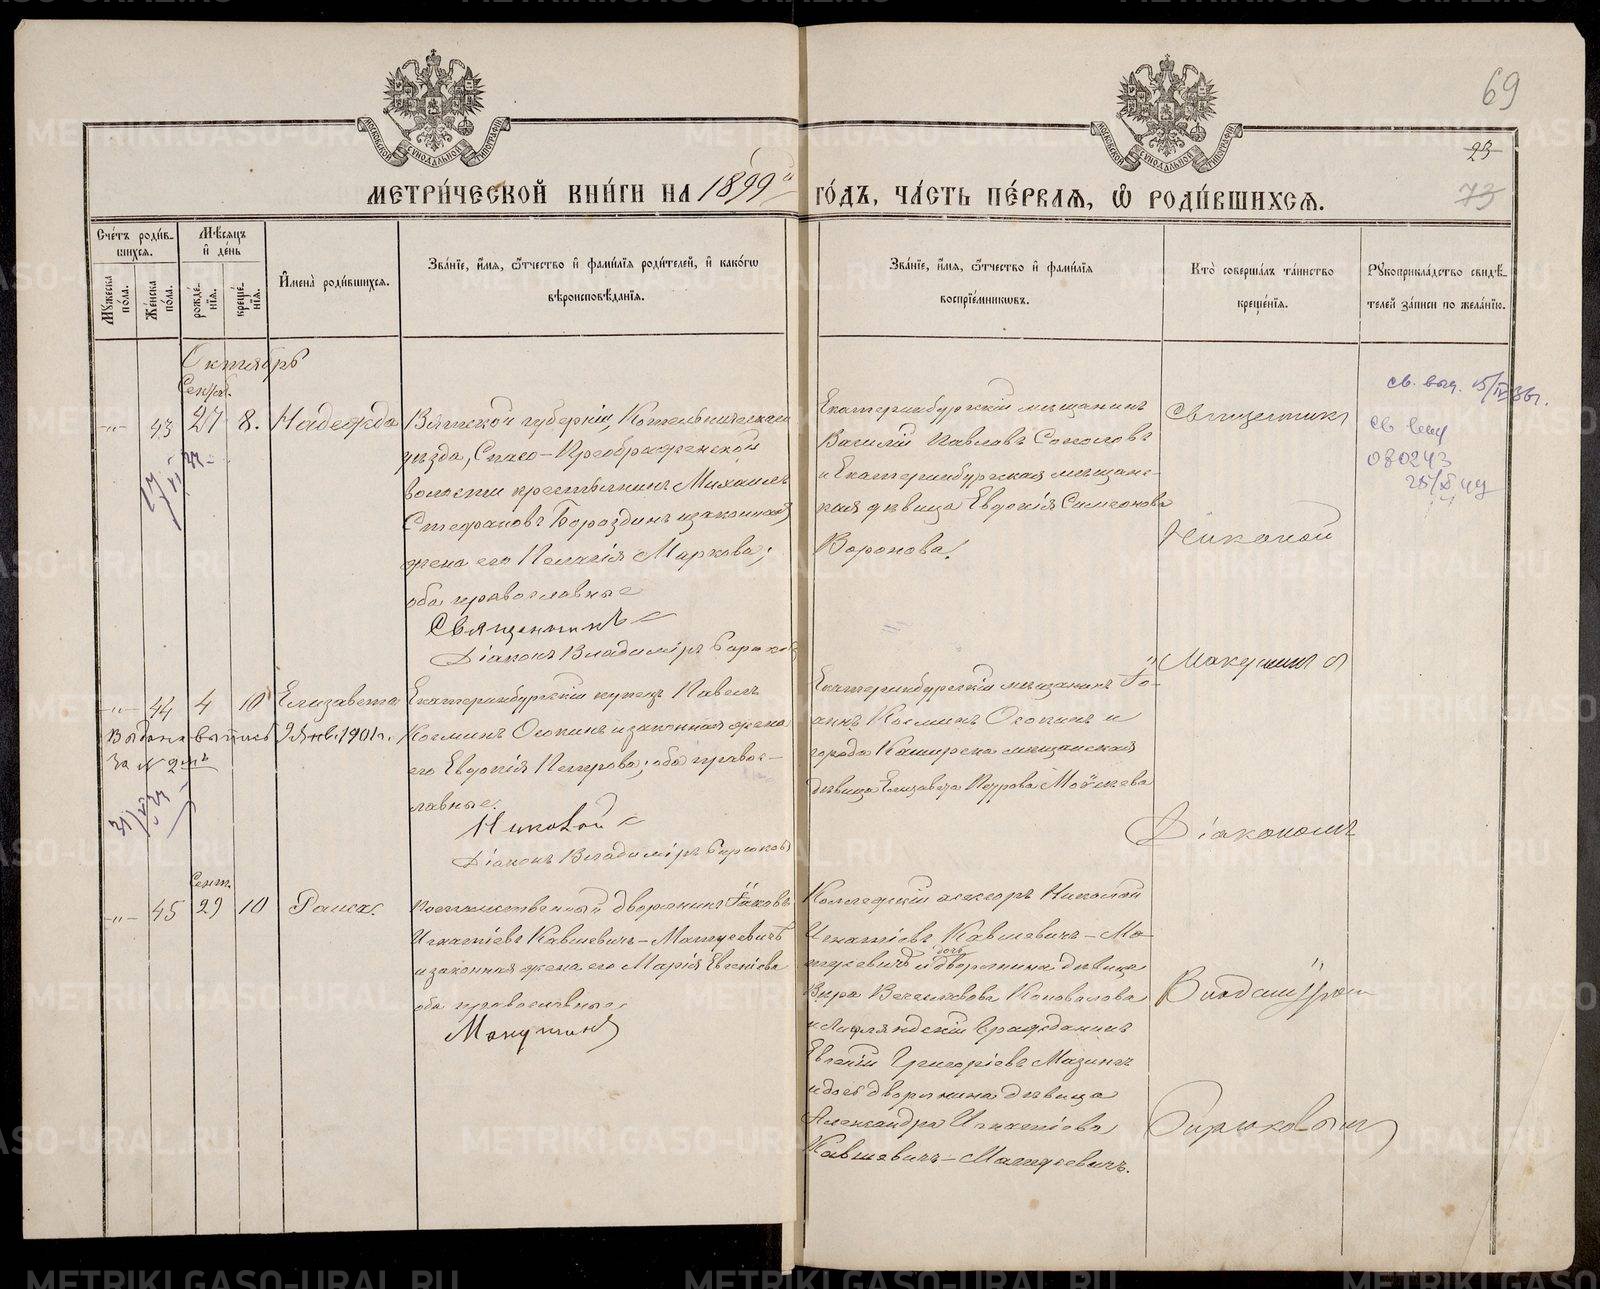 69
23
73
МОСКОВСКОЙ СУНОДАЛЬНОЙ ТИПОГРАФІИ
МОСКОВСКОЙ СУНОДАЛЬНОЙ ТИПОГРАФІИ
МЕТРИ́ЧЕСКОЙ КНИ́ГИ НА 1899й ГО́ДЪ, ЧА́СТЬ ПЕ́РВАЯ, Ѡ РОДИ́ВШИХСЯ.
Сче́тъ роди́в-
шихся.
Мѣ́сяцъ
и де́нь
Му́жеска
по́ла.
Же́нска
по́ла.
рожде́-
нїя.
креще́-
нїя.
Имена̀ роди́вшихся.
Зва́нїе, и́мя, ѻ҆́тчество и фами́лїя роди́телей, и како́гѡ
вѣроисповѣ́данїя.
Зва́нїе, и́мя, ѻ҆́тчество и фами́лїя
восприе́мниковъ.
Кто̀ соверша́лъ та́инство
креще́нїя.
Рукоприкла́дство свидѣ́-
телей за́писи по жела́нїю.
Октябрь
Сентяб.
-„- 43 27 8. Надежда
Вятской губерніи, Котельническаго
уѣзда, Спасо-Преображенской
волости крестьянинъ Михаилъ
Стефановъ Бороздинъ и законная
жена его Пелагія Маркова;
оба православные
Священникъ
Діаконъ Владиміръ Бирюковъ
Екатеринбургскій мѣщанинъ
Василій Павловъ Соколовъ
и Екатеринбургская мѣщанс-
кая дѣвица Евдокія Симеонова
Воронова.
Священникъ
Николай
св. выд.
св выд
080243
-„- 44 4 10 Елизавета
Выдана выпись 9 Янв. 1901 г.
за № 2мъ
Екатеринбургскій купецъ Павелъ
Космичъ Осокинъ и законная жена
его Евдокія Петрова; оба правос-
лавные.
Николай
Діаконъ Владиміръ Бирюковъ
Екатеринбургскій мѣщанинъ Іо-
аннъ Космичъ Осокинъ и
города Каширска мѣщанская
дѣвица Елизавета Петрова
Макушинъ
Діакономъ
Сент.
-„- 45 29 10 Раиса.
Потомственный дворянинъ Іаковъ
Игнатіевъ Кавшевичъ-Матусевичъ
и законная жена его Марія Евгеніева
оба православные
Макушинъ
Коллежскій асессоръ Николай
Игнатіевъ Кавшевичъ-Ма-
тусевичъ и дочь дворянина дѣвица
Вѣра Коновалова
и Лифляндскій гражданинъ
Евгеній Григоріевъ Мазингъ
и дочь дворянина дѣвица
Александра Игнатіева
Кавшевичъ-Матусевичъ.
Владиміромъ
Бирюковымъ